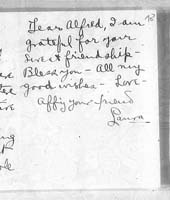 Dear Alfred, I am
grateful for your
sweet friendship -
Bless you - All my
good wishes - Love -
Affly your friend
Laura -